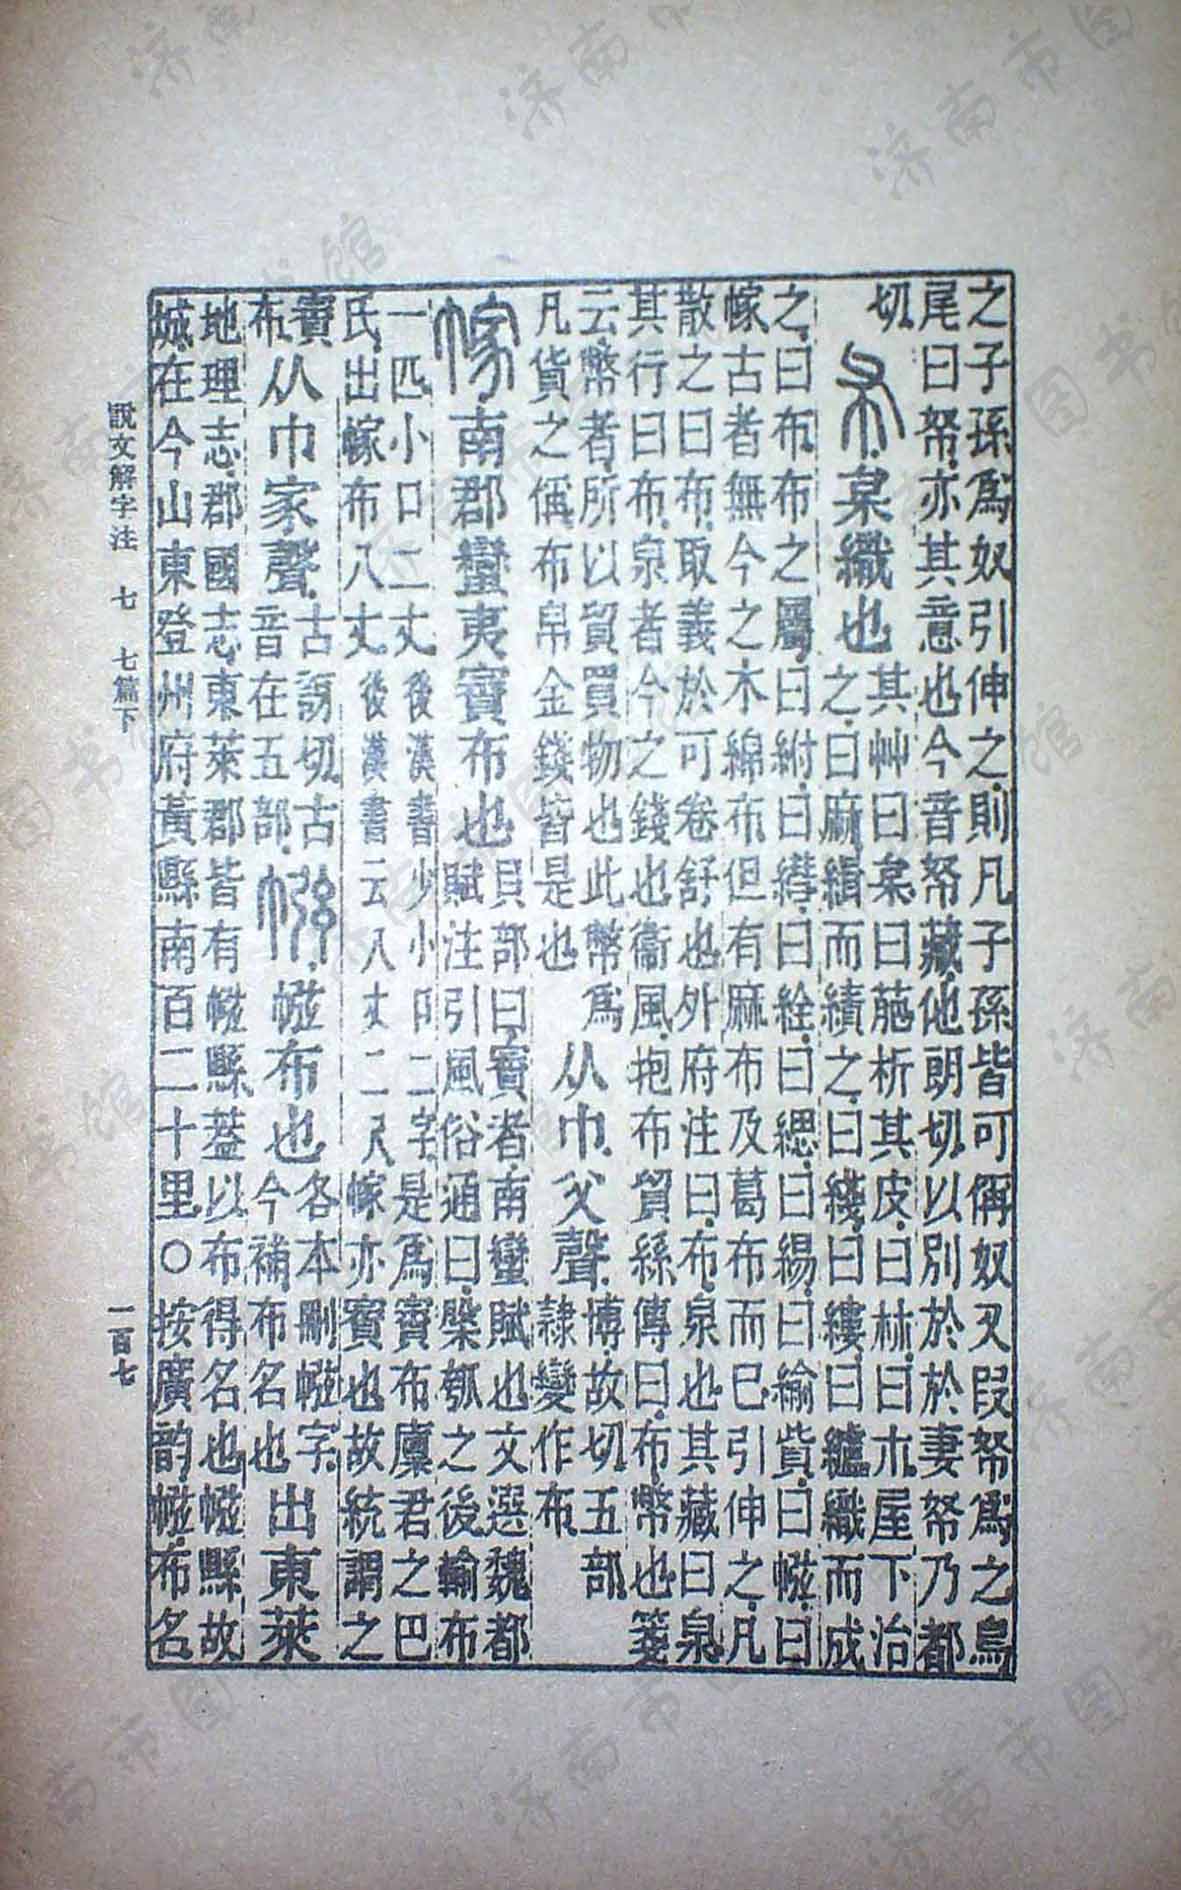 之子孫爲奴引伸之則凡子孫皆可偁奴又叚帑爲之鳥
尾曰帑亦其意也今音帑藏他朗切以別於於妻帑乃都
切
布枲織也
其艸曰枲曰萉析其皮曰𣏟曰𣎳屋下治
之曰麻緝而績之曰綫曰縷曰纑織而成
之曰布布之屬曰紨曰繐曰絟曰緦曰緆曰緰貲曰㡉曰
幏古者無今之木綿布但有麻布及葛布而巳引伸之凡
散之曰布取義於可卷舒也外府注曰布泉也其藏曰泉
其行曰布泉者今之錢也衞風抱布貿絲傳曰布幣也箋
云幣者所以貿買物也此幣爲
凡貨之偁布帛金錢皆是也
从巾父聲
博故切五部
隷變作布
幏南郡蠻夷賨布也
貝部曰賨者南蠻賦也文選魏都
賦注引風俗通曰槃瓠之後輸布
一匹小口二丈後漢書少小口二字是爲賨布廩君之巴
氏出幏布八丈後漢書云八丈二尺幏亦賨也故統謂之
賨布
从巾家聲
古訝切古
音在五部
㡉㡉布也
各本刪㡉字
今補布名也
出東萊
地理志郡國志東萊郡皆有㡉縣葢以布得名也㡉縣故
城在今山東登州府黃縣南百二十里○按廣韵㡉布名
說文解字注 七 七篇下
一百七